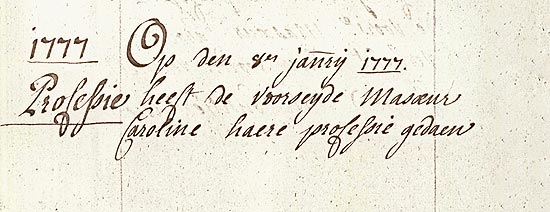 1777 Op den 8en janrij 1777.
Professie heeft de voorseyde Masoeur
Caroline haere professie gedaen